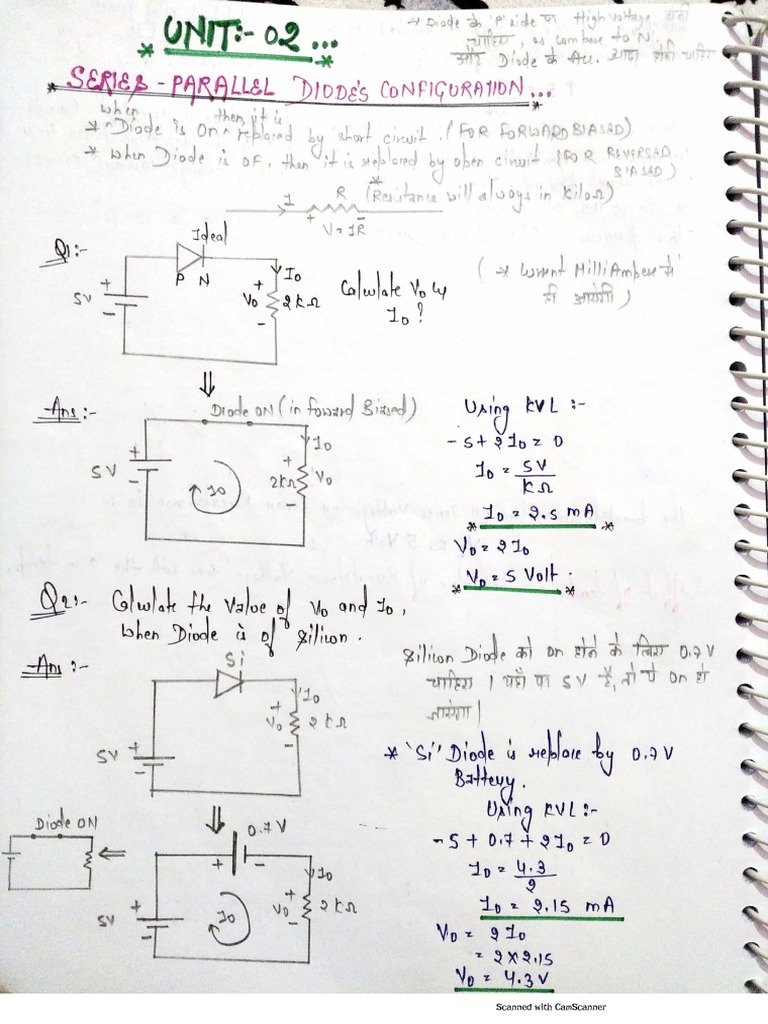 → Diode के 'P' side पर High voltage होनी
चाहिए, as compare to N.
और Diode के Acc. ज्यादा होनी चाहिए
* UNIT:- 02... *
* SERIES - PARALLEL DIODE'S CONFIGURATION... *
* when Diode is On then, it is replaced by short circuit. (FOR FORWARD BIASED)
* when Diode is OF, then it is replaced by open circuit (FOR REVERSED BIASAD)
I R * (Resistance will always in kiloΩ)
+ -
V = IR
Q1:- Ideal
P N
5V + -
I0
V0 + - 2kΩ
Calculate V0 &
I0 ?
( * Current Milli Ampere में
ही आयेगी )
⇓
Ans:- Diode ON (in foward Biased)
5V + -
I0
I0
2kΩ + - V0
Using KVL :-
-5+2I0 = 0
I0 = 5V
KΩ
* I0 = 2.5 mA *
V0 = 2I0
* V0 = 5 Volt. *
Q2:- Calculate the value of V0 and I0,
when Diode is of silicon.
Ans:- Si
5V + -
I0
V0 + - 2kΩ
silicon Diode को on होने के लिए 0.7V
चाहिए। यहाँ पर 5V है, तो ये on हो
जाएगा।
* "Si" Diode is replace by 0.7V
Battery.
⇓
Diode ON
⇐
0.7V
+ -
5V + -
I0
I0
V0 + - 2kΩ
Using KVL:-
-5 + 0.7 + 2I0 = 0
I0 = 4.3
2
I0 = 2.15 mA
V0 = 2I0
= 2×2.15
V0 = 4.3V
Scanned with CamScanner